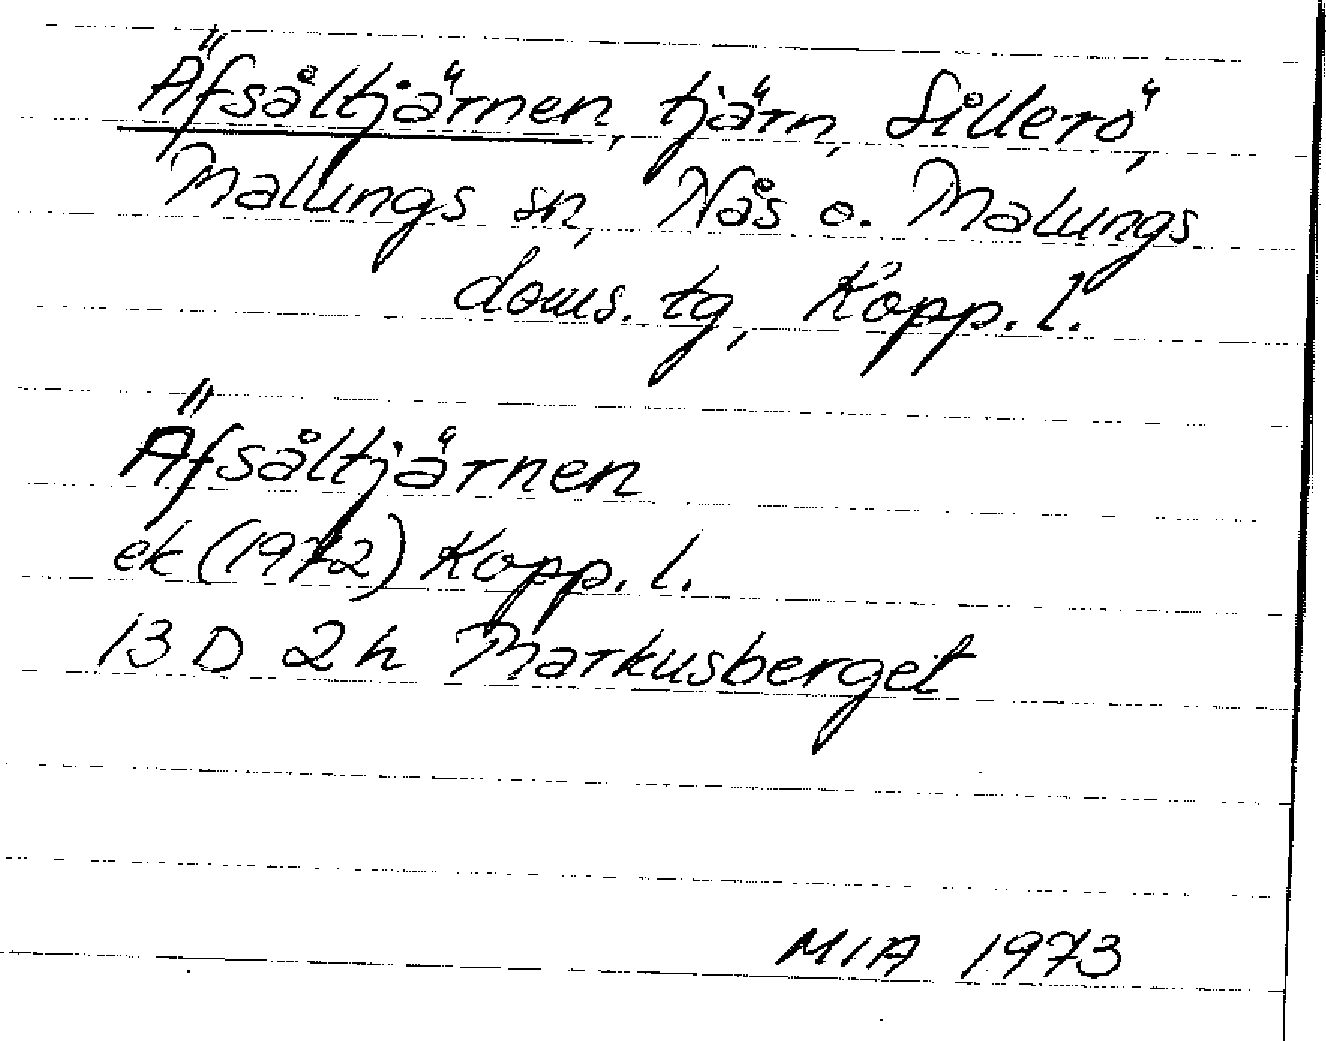 Äfsåltjärnen, tjärn, Sillerö,
Malungs sn, Nås o. Malungs
doms. tg, Kopp. l.
Äfsåltjärnen
ek (1972) Kopp. l.
13 D 2h Markusberget
MIA 1973